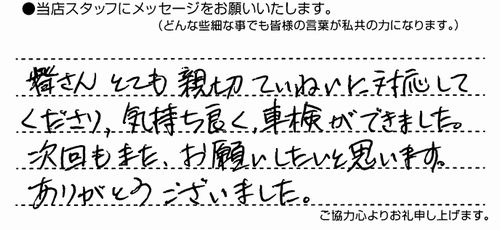 ●当店スタッフにメッセージをお願いいたします。
（どんな些細な事でも皆様の言葉が私共の力になります。）
皆さん とても 親切 ていねいに 対応して
くださり、気持ち良く、車検ができました。
次回もまた、お願いしたいと思います。
ありがとうございました。
ご協力心よりお礼申し上げます。